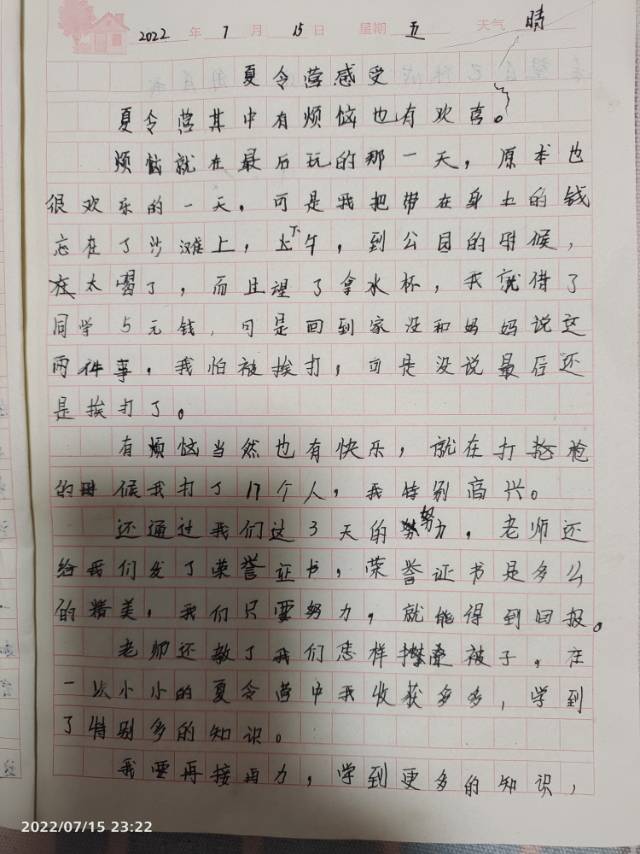 2022 年 7 月 15 日 星期 五 天气 晴
夏令营感受
夏令营其中有烦恼也有欢喜。
烦恼就在最后玩的那一天，原本也
很欢乐的一天，可是我把带在身上的钱
忘在了沙滩上，下午，到公园的时候，
在太 了，而且 了拿水杯，我就借了
同学5元钱，可是回到家没和妈妈说这
两件事，我怕被挨打，可是没说最后还
是挨打了。
有烦恼当然也有快乐，就在打枪
的时候我打了17个人，我特别高兴。
还通过我们这3天的努力，老师还
给我们发了荣誉证书，荣誉证书是多么
的精美，我们只要努力，就能得到回报。
老师还教了我们怎样叠被子，在
一次小小的夏令营中我收获多多，学到
了特别多的知识。
我要再接再力，学到更多的知识，
2022/07/15 23:22